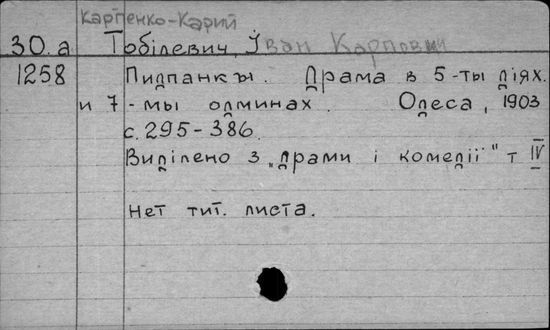 Карпенко-Карий
30.а Тобілевич, Іван Карпович
1258 Пидпанкы. Драма в 5-ты діях.
и 7-мы одминах. Одеса, 1903
с. 295-386.
Виділено з „драми і комедії" т IV
Нет тит. листа.